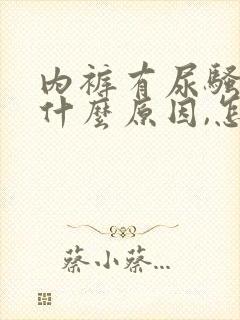 内裤有尿骚
什麼原因,怎
蔡小蔡...